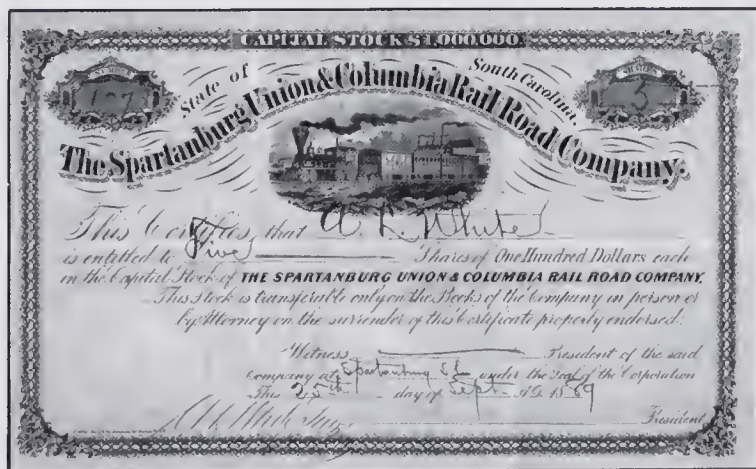 CAPITAL STOCK $1,000,000.
NUMBER
SHARES
5
State of South Carolina.
The Spartanburg Union & Columbia Rail Road Company.
This Certifies, that A. L. White
is entitled to Five Shares of One Hundred Dollars each
in the Capital Stock of THE SPARTANBURG UNION & COLUMBIA RAIL ROAD COMPANY.
This Stock is transferable only on the Books of the Company in person or
by Attorney on the surrender of this Certificate properly endorsed.
Witness President of the said
Company at Spartanburg S.C. under the Seal of the Corporation
This 25th day of Sept. AD 1889
President